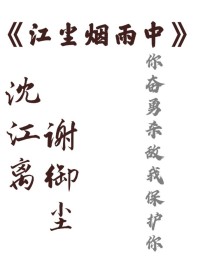 《江尘烟雨中》
你奋勇杀敌我保护你
谢御尘
沈江离